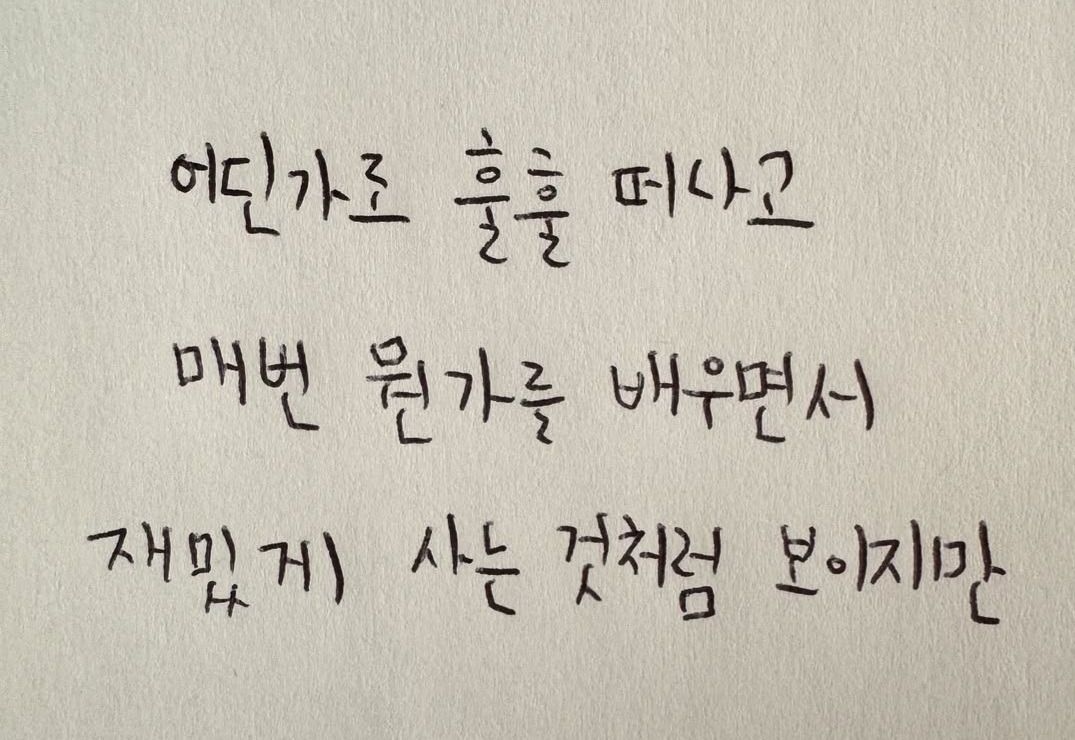 어딘가로 훌훌 떠나고
매번 뭔가를 배우면서
재밌게 사는 것처럼 보이지만